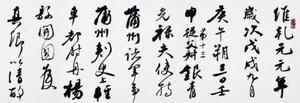 維乾元元年
歲次戊戌九月
庚午朔三日壬
申第十三叔銀青
光祿夫使持節
蒲州諸軍事
蒲州刺史上輕
車都尉丹楊
縣開國侯
真卿以清酌